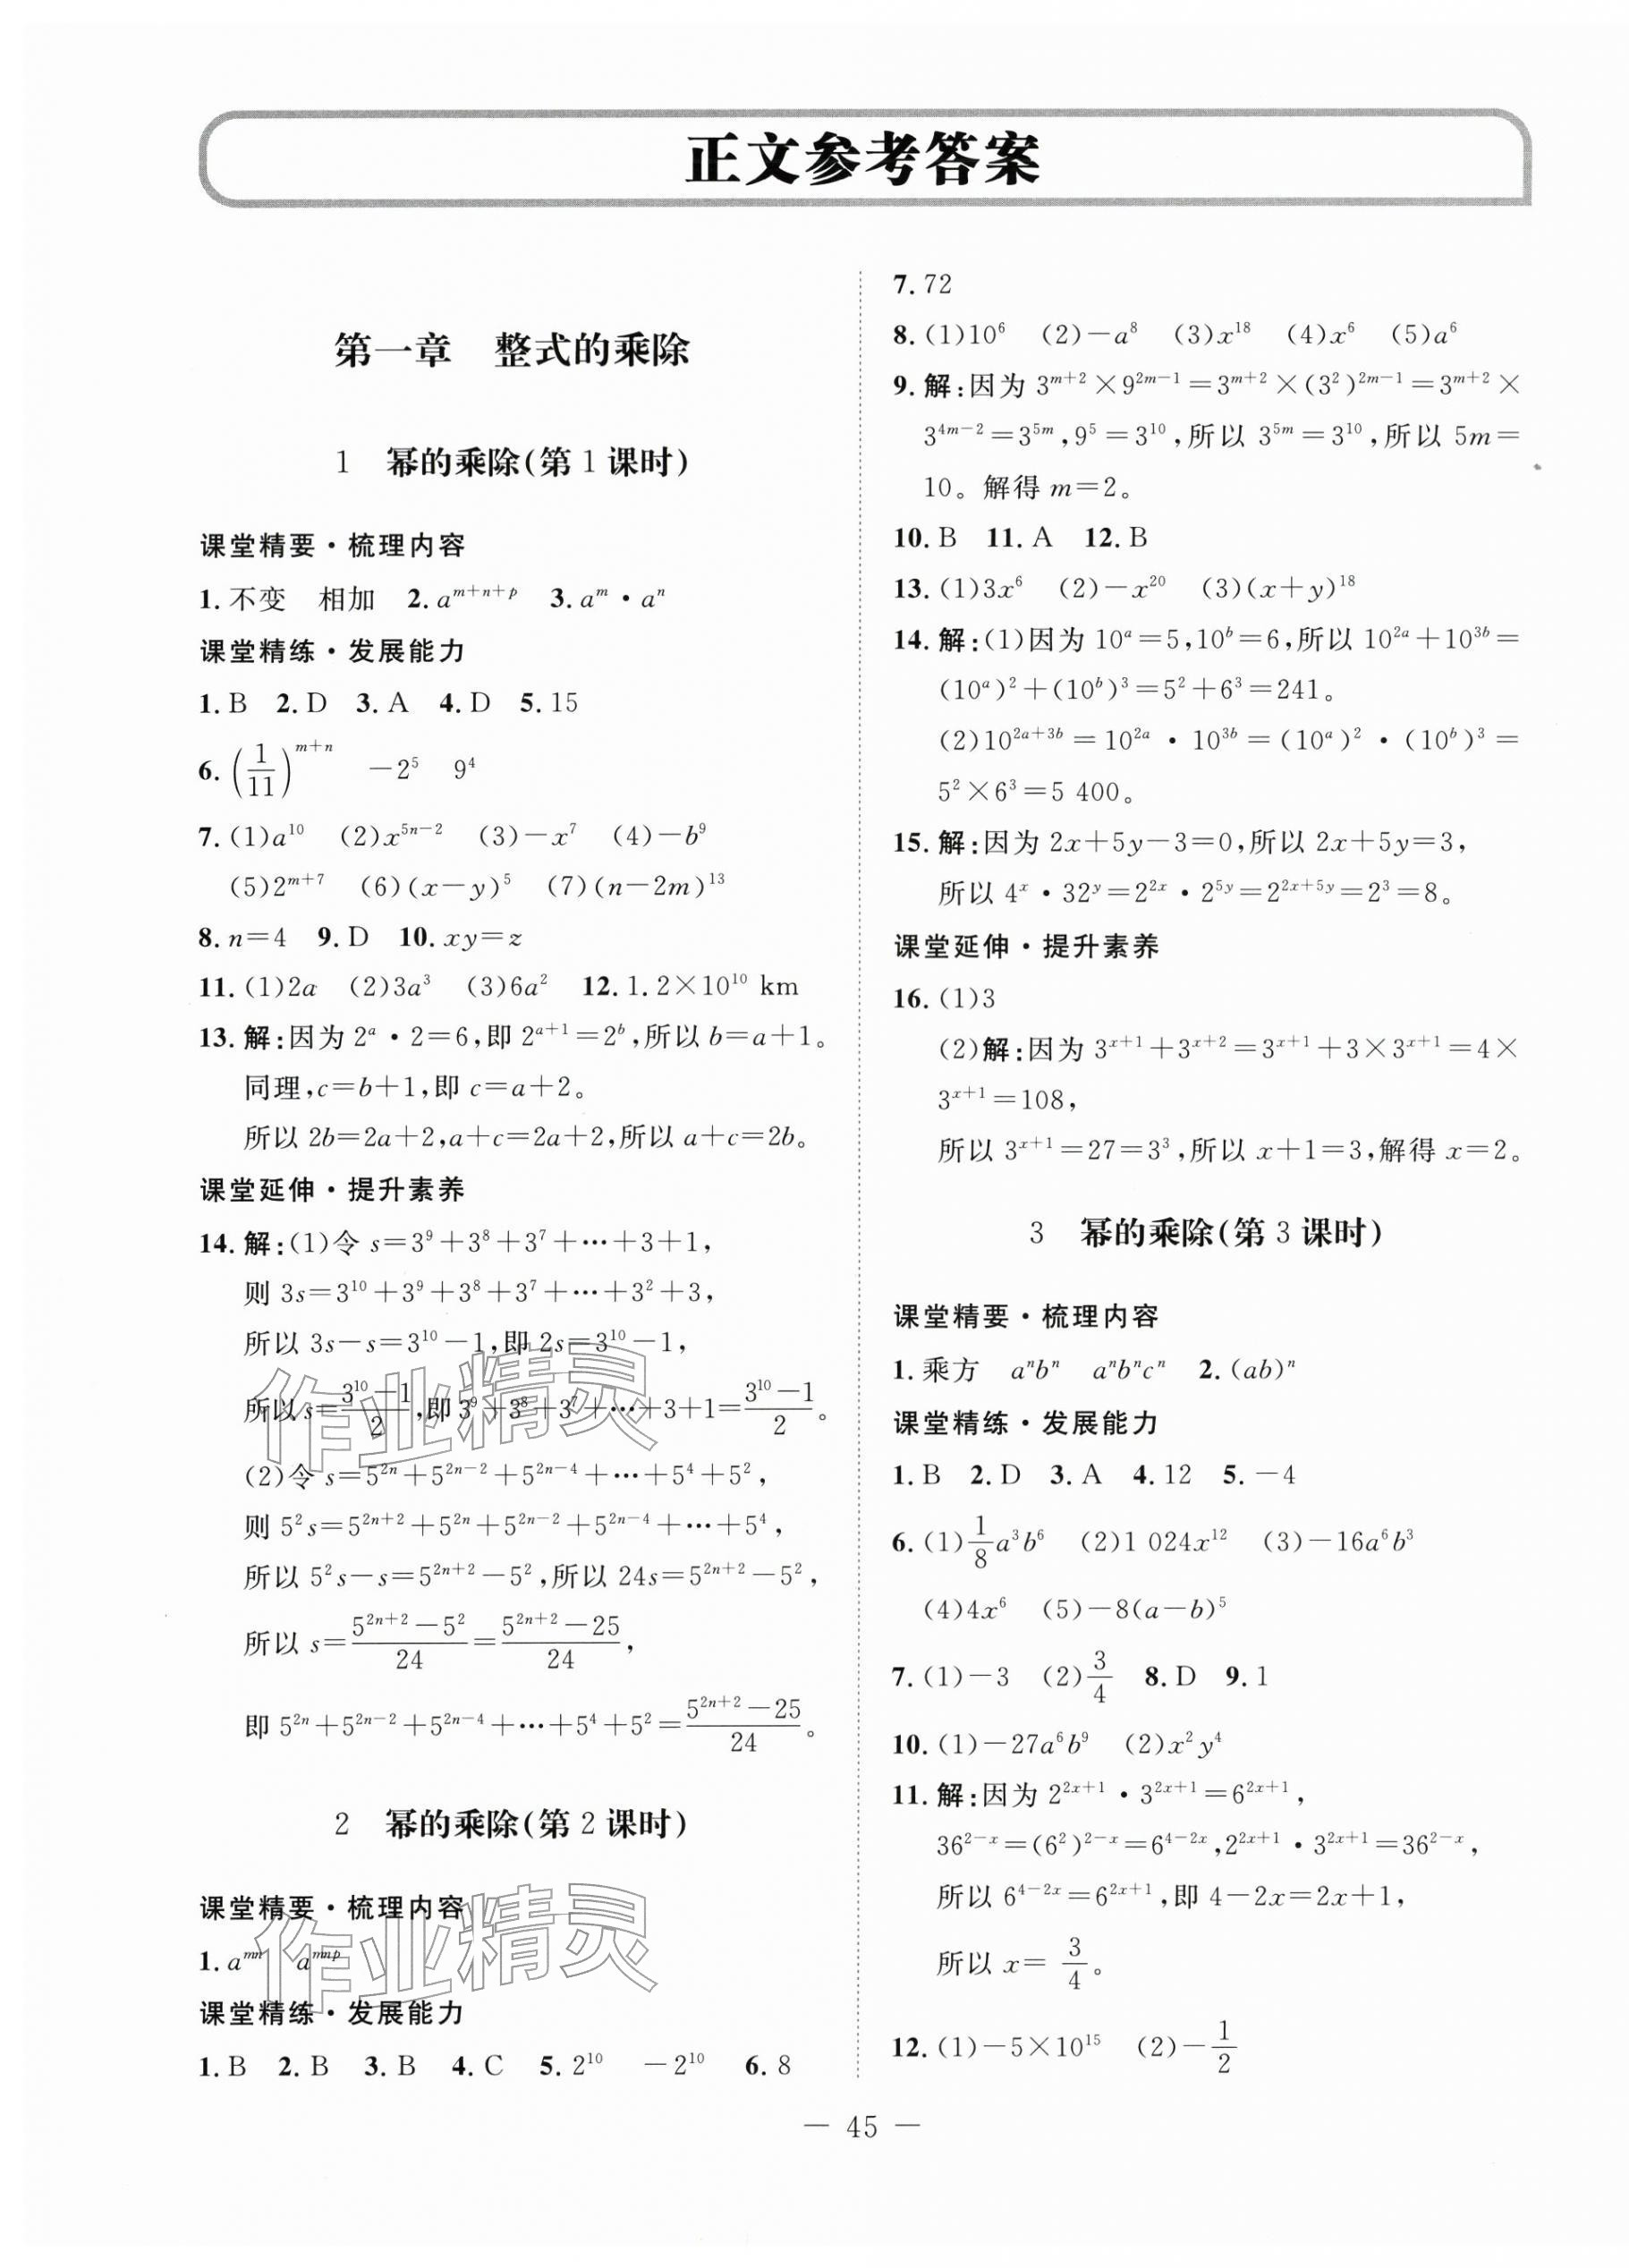 正文参考答案
第一章 整式的乘除
1 幂的乘除(第1课时)
课堂精要·梳理内容
1. 不变 相加 2. a^{m+n+p} 3. a^m·a^n
课堂精练·发展能力
1. B 2. D 3. A 4. D 5. 15
6. (1/11)^{m+n} -2^5 9^4
7. (1)a^{10} (2)x^{5n-2} (3)-x^7 (4)-b^9
(5)2^{m+7} (6)(x-y)^5 (7)(n-2m)^{13}
8. n=4 9. D 10. xy=z
11. (1)2a (2)3a^3 (3)6a^2 12. 1.2×10^{10} km
13. 解:因为 2^a·2=6,即 2^{a+1}=2^b,所以 b=a+1。
同理,c=b+1,即 c=a+2。
所以 2b=2a+2,a+c=2a+2,所以 a+c=2b。
课堂延伸·提升素养
14. 解:(1)令 s=3^9+3^8+3^7+…+3+1,
则 3s=3^{10}+3^9+3^8+3^7+…+3^2+3,
所以 3s-s=3^{10}-1,即 2s=3^{10}-1,
所以 s=(3^{10}-1)/2,即 3^9+3^8+3^7+…+3+1=(3^{10}-1)/2。
(2)令 s=5^{2n}+5^{2n-2}+5^{2n-4}+…+5^4+5^2,
则 5^2s=5^{2n+2}+5^{2n}+5^{2n-2}+5^{2n-4}+…+5^4,
所以 5^2s-s=5^{2n+2}-5^2,所以 24s=5^{2n+2}-5^2,
所以 s=(5^{2n+2}-5^2)/24=(5^{2n+2}-25)/24,
即 5^{2n}+5^{2n-2}+5^{2n-4}+…+5^4+5^2=(5^{2n+2}-25)/24。
2 幂的乘除(第2课时)
课堂精要·梳理内容
1. a^{mn} a^{mnp}
课堂精练·发展能力
1. B 2. B 3. B 4. C 5. 2^{10} -2^{10} 6. 8
7. 72
8. (1)10^6 (2)-a^8 (3)x^{18} (4)x^6 (5)a^6
9. 解:因为 3^{m+2}×9^{2m-1}=3^{m+2}×(3^2)^{2m-1}=3^{m+2}×
3^{4m-2}=3^{5m},9^5=3^{10},所以 3^{5m}=3^{10},所以 5m=
10。解得 m=2。
10. B 11. A 12. B
13. (1)3x^6 (2)-x^{20} (3)(x+y)^{18}
14. 解:(1)因为 10^a=5,10^b=6,所以 10^{2a}+10^{3b}=
(10^a)^2+(10^b)^3=5^2+6^3=241。
(2)10^{2a+3b}=10^{2a}·10^{3b}=(10^a)^2·(10^b)^3=
5^2×6^3=5 400。
15. 解:因为 2x+5y-3=0,所以 2x+5y=3,
所以 4^x·32^y=2^{2x}·2^{5y}=2^{2x+5y}=2^3=8。
课堂延伸·提升素养
16. (1)3
(2)解:因为 3^{x+1}+3^{x+2}=3^{x+1}+3×3^{x+1}=4×
3^{x+1}=108,
所以 3^{x+1}=27=3^3,所以 x+1=3,解得 x=2。
3 幂的乘除(第3课时)
课堂精要·梳理内容
1. 乘方 a^nb^n a^nb^nc^n 2. (ab)^n
课堂精练·发展能力
1. B 2. D 3. A 4. 12 5. -4
6. (1)1/8 a^3b^6 (2)1 024x^{12} (3)-16a^6b^3
(4)4x^6 (5)-8(a-b)^5
7. (1)-3 (2)3/4 8. D 9. 1
10. (1)-27a^6b^9 (2)x^2y^4
11. 解:因为 2^{2x+1}·3^{2x+1}=6^{2x+1},
36^{2-x}=(6^2)^{2-x}=6^{4-2x},2^{2x+1}·3^{2x+1}=36^{2-x},
所以 6^{4-2x}=6^{2x+1},即 4-2x=2x+1,
所以 x=3/4。
12. (1)-5×10^{15} (2)-1/2
— 45 —
作业精灵
作业精灵